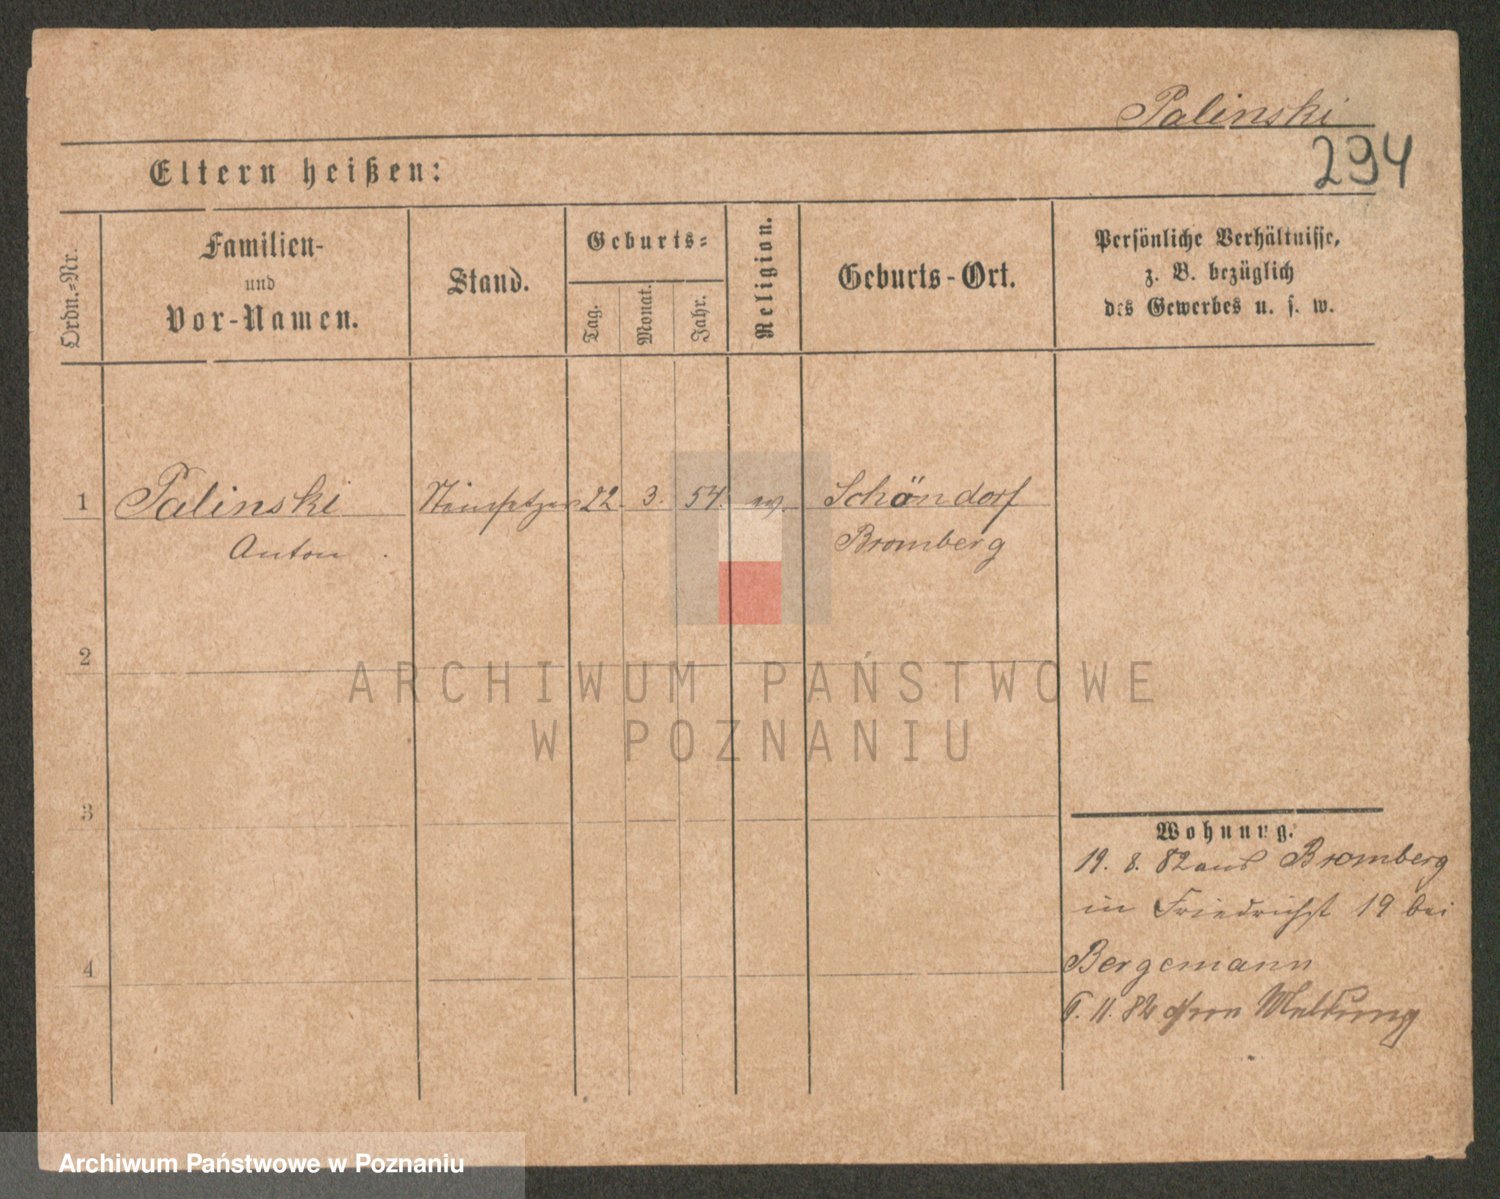 Palinski
294
Eltern heißen:
Ordn.-Nr.
Familien-
und
Vor-Namen.
Stand.
Geburts-
Tag.
Monat.
Jahr.
Religion.
Geburts-Ort.
Persönliche Verhältnisse,
z. B. bezüglich
des Gewerbes u. s. w.
1 Palinski 22. 3. 54. Schöndorf
Anton Bromberg
2
3
4
ARCHIWUM PAŃSTWOWE
W POZNANIU
Wohnung.
19. 8. 82 aus Bromberg
in Friedrichst 19 bei
Bergemann
11. 82 Meldung
Archiwum Państwowe w Poznaniu